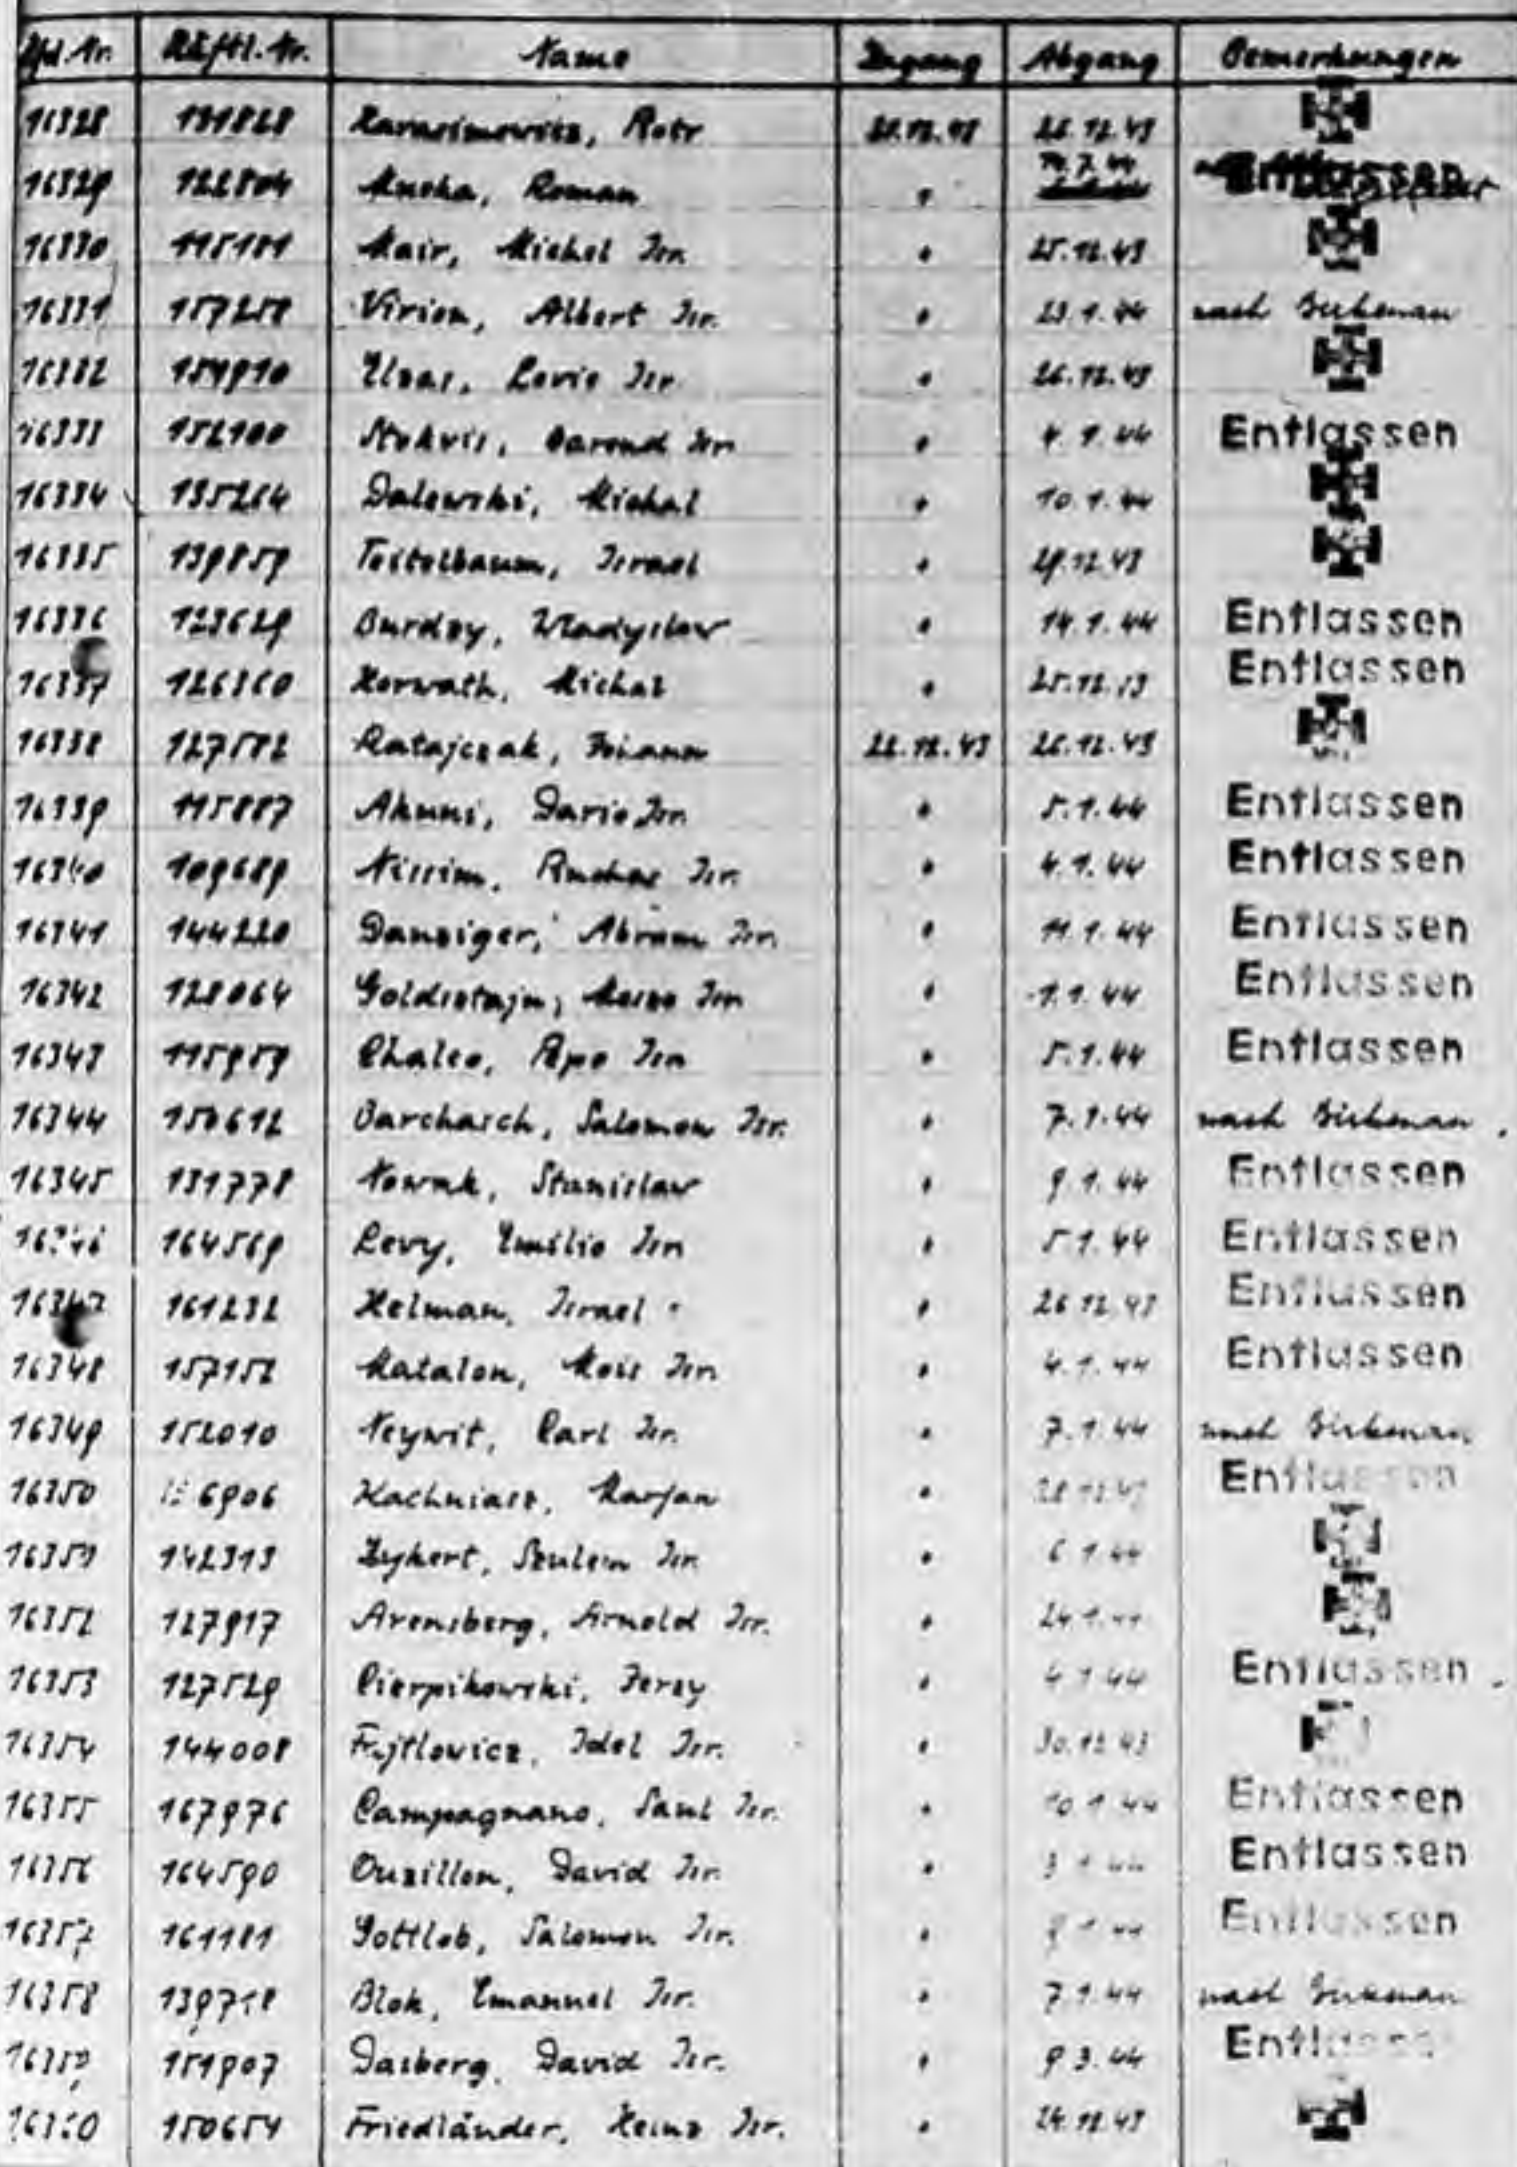 Lfd. Nr. Häftl. Nr. Name Zugang Abgang Bemerkungen
16328 131828 Karasimowitz, Piotr 21.12.43 26.12.43
16329 122804 Mucha, Roman " 14.7.44 Entlassen
16330 115181 Mair, Michel Isr. " 25.12.43
16331 157258 Virion, Albert Isr. " 23.1.44 nach Birkenau
16332 151910 Elzas, Levie Isr. " 26.12.43
16333 152100 Stokvis, Barend Isr. " 4.1.44 Entlassen
16334 135264 Dalewski, Michal " 10.1.44
16335 139859 Teitelbaum, Israel " 29.12.43
16336 123629 Burdzy, Wladyslaw " 14.1.44 Entlassen
16337 126360 Horwath, Michal " 25.12.43 Entlassen
16338 127582 Ratajczak, 22.12.43 26.12.43
16339 115887 Akuni, Dario Isr. " 5.1.44 Entlassen
16340 109689 Nissim, Isr. " 4.1.44 Entlassen
16341 144220 Danziger, Abram Isr. " 11.1.44 Entlassen
16342 128064 Goldsztajn, Isr. " 1.1.44 Entlassen
16343 115959 Chaleo, Pepo Isr. " 5.1.44 Entlassen
16344 150612 Barchasch, Salomon Isr. " 7.1.44 nach Birkenau
16345 131778 Nowak, Stanislaw " 9.1.44 Entlassen
16346 164569 Levy, Emilio Isr. " 5.1.44 Entlassen
16347 161232 Helman, Israel " 26.12.43 Entlassen
16348 157152 Matalon, Mois Isr. " 4.1.44 Entlassen
16349 152010 Neywit, Carl Isr. " 7.1.44 nach Birkenau
16350 Kachniarz, Marjan " 28.12.43 Entlassen
16351 142313 Zykert, Szulem Isr. " 6.1.44
16352 127917 Arensberg, Arnold Isr. " 24.1.44
16353 127529 Cierpikowski, Jerzy " 4.1.44 Entlassen
16354 144008 Fajtlowicz, Idel Isr. " 30.12.43
16355 167976 Campagnano, Saul Isr. " 10.1.44 Entlassen
16356 164590 Ouzillon, David Isr. " 3.1.44 Entlassen
16357 161181 Gottlob, Salomon Isr. " Entlassen
16358 139718 Blok, Emanuel Isr. " 7.1.44 nach Birkenau
16359 151907 Dasberg, David Isr. " 9.3.44 Entlassen
16360 150654 Friedländer, Heinz Isr. " 24.12.43